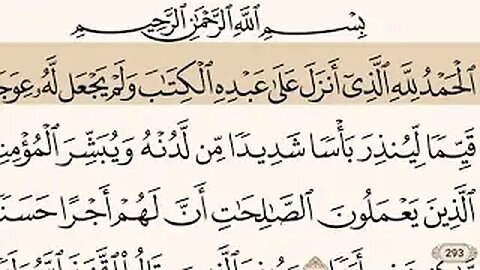 بِسْمِ اللَّهِ الرَّحْمَٰنِ الرَّحِيمِ
الْحَمْدُ لِلَّهِ الَّذِي أَنزَلَ عَلَىٰ عَبْدِهِ الْكِتَابَ وَلَمْ يَجْعَل لَّهُ عِوَجَ
قَيِّمًا لِّيُنذِرَ بَأْسًا شَدِيدًا مِّن لَّدُنْهُ وَيُبَشِّرَ الْمُؤْمِنِ
الَّذِينَ يَعْمَلُونَ الصَّالِحَاتِ أَنَّ لَهُمْ أَجْرًا حَسَنً
293